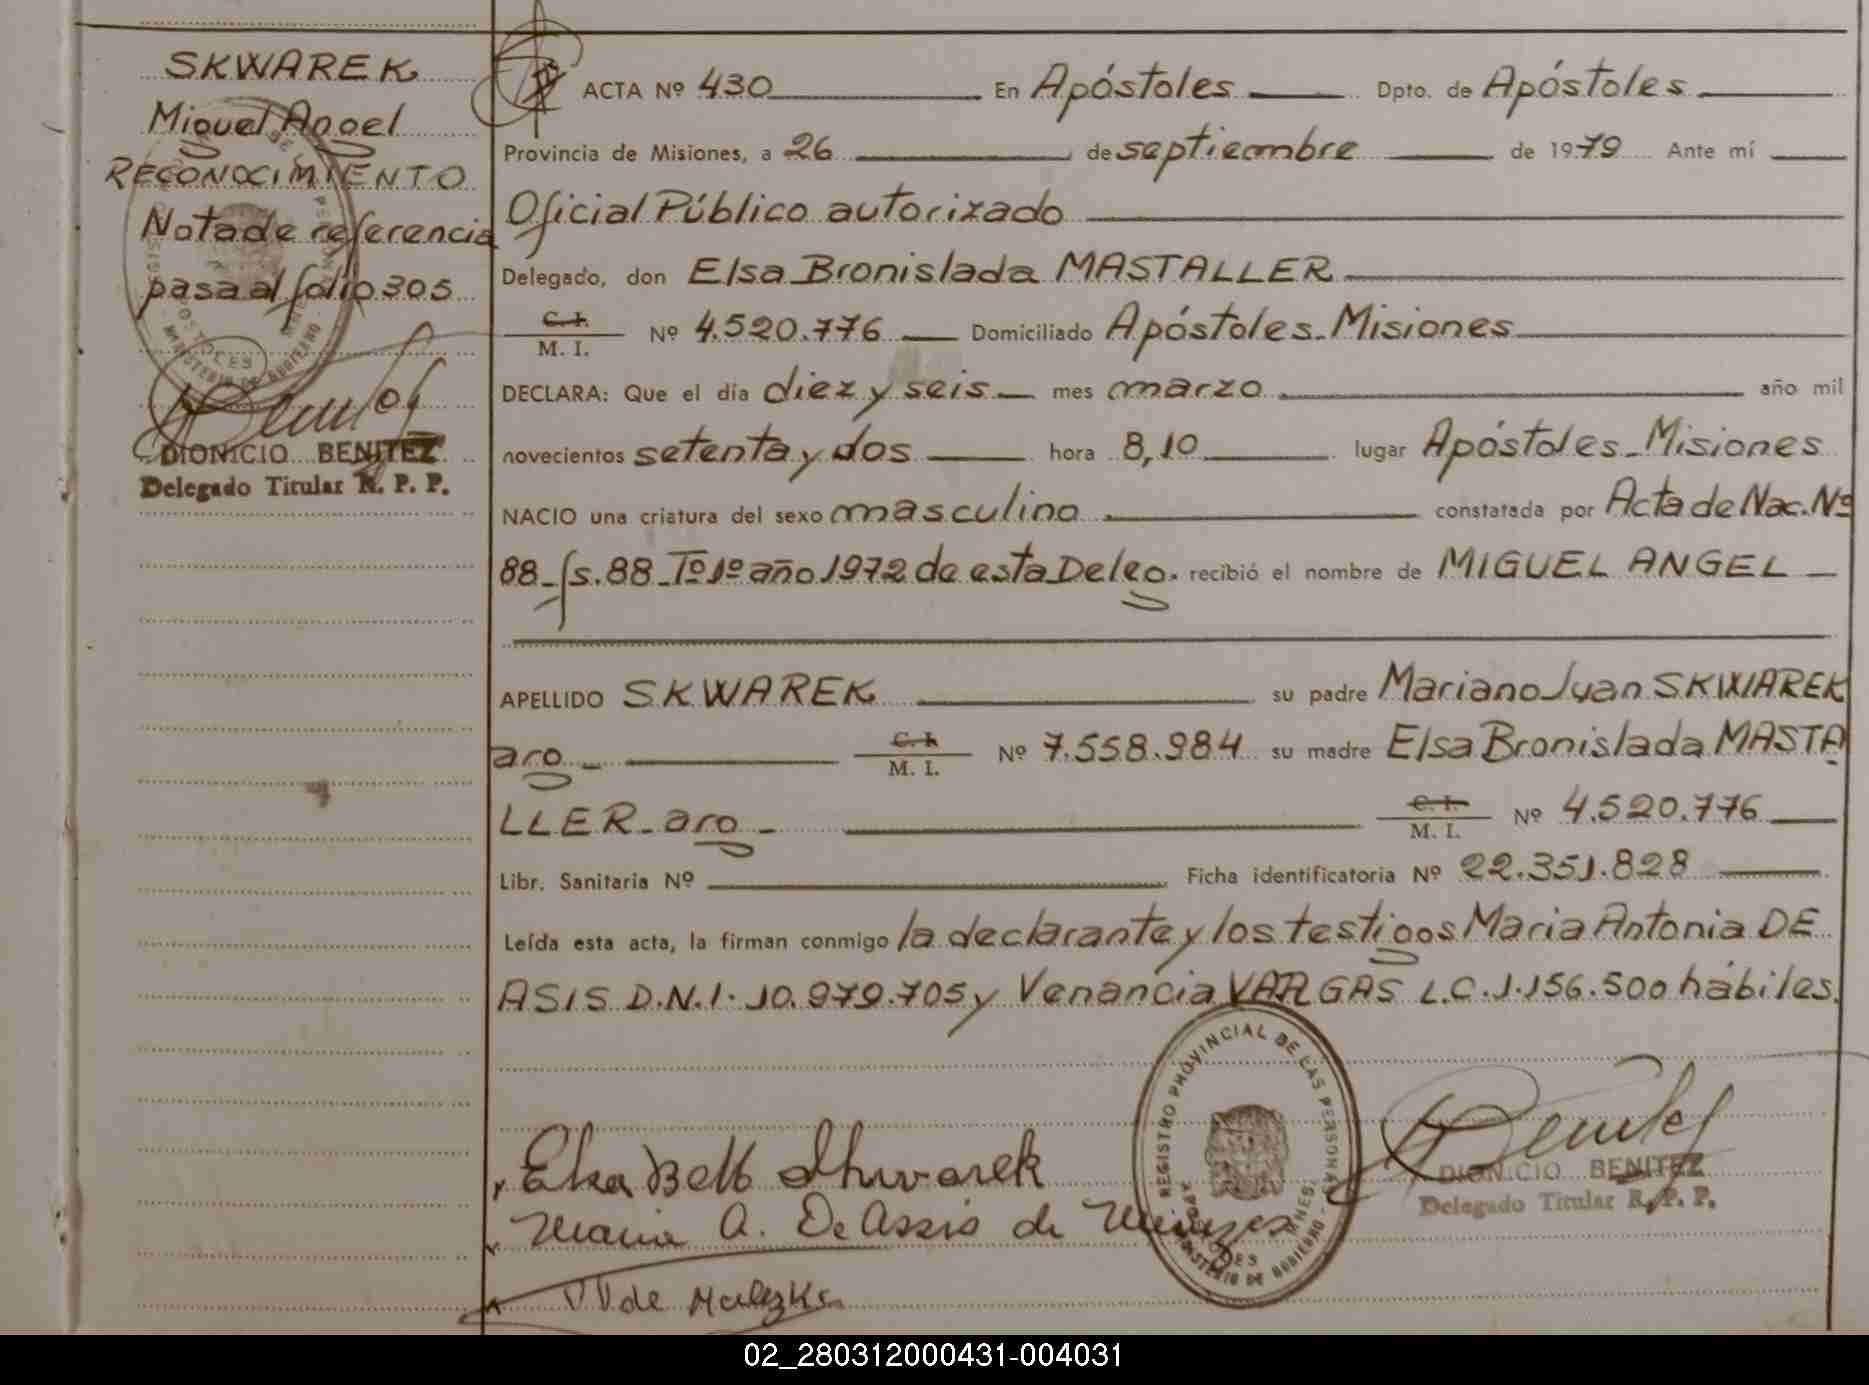 SKWAREK
Miguel Angel
RECONOCIMIENTO
Nota de referencia
pasa al folio 305
DIONICIO BENITEZ
Delegado Titular R. P. P.
ACTA Nº 430 En Apóstoles Dpto. de Apóstoles
Provincia de Misiones, a 26 de septiembre de 1979 Ante mí
Oficial Público autorizado
Delegado, don Elsa Bronislada MASTALLER
C. I.
M. I. Nº 4.520.776 Domiciliado Apóstoles-Misiones
DECLARA: Que el día diez y seis mes marzo año mil
novecientos setenta y dos hora 8,10 lugar Apóstoles-Misiones
NACIO una criatura del sexo masculino constatada por Acta de Nac. Nº
88-fs. 88-Tº1º año 1972 de esta Deleg. recibió el nombre de MIGUEL ANGEL
APELLIDO SKWAREK su padre Mariano Juan SKWAREK
arg- C. I. M. I. Nº 7.558.984 su madre Elsa Bronislada MASTA
LLER-arg- C. I. M. I. Nº 4.520.776
Libr. Sanitaria Nº Ficha identificatoria Nº 22.351.828
Leída esta acta, la firman conmigo la declarante y los testigos Maria Antonia DE
ASIS D.N.I. 10.979.705 y Venancia VARGAS L.C. 1.156.500 hábiles.
REGISTRO PROVINCIAL DE LAS PERSONAS
MINISTERIO DE GOBIERNO
Maria A. De Assis de
DIONICIO BENITEZ
Delegado Titular R. P. P.
02_280312000431-004031